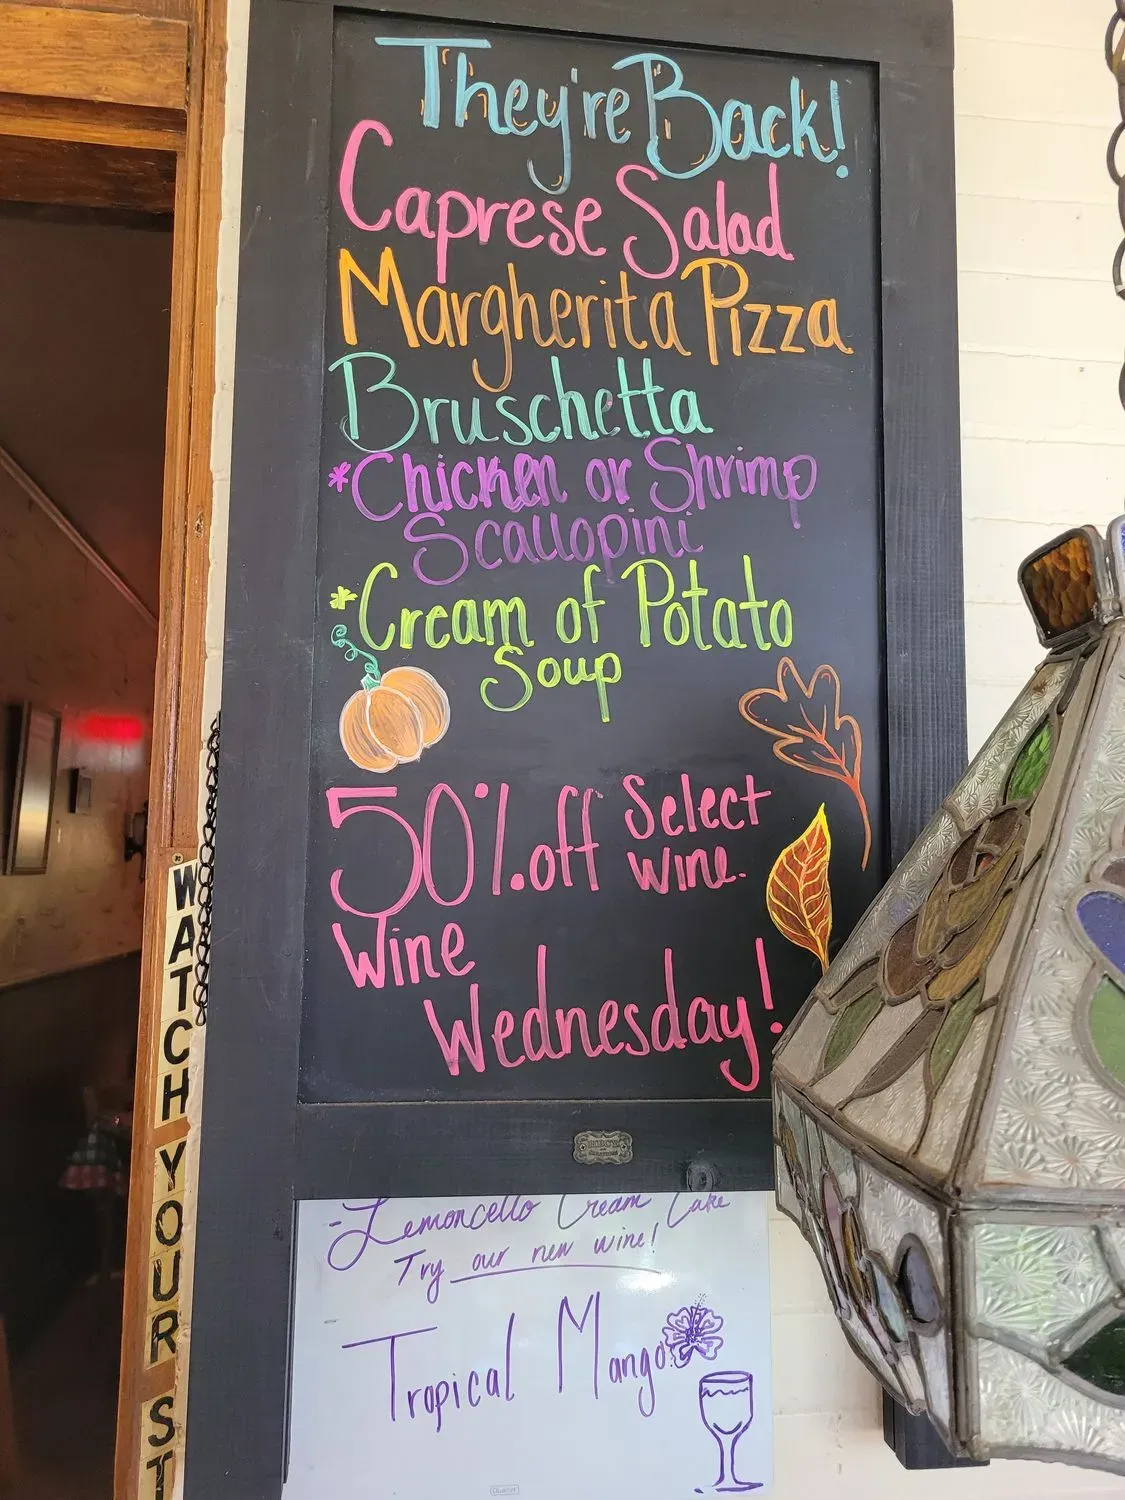 They're Back!
Caprese Salad
Margherita Pizza
Bruschetta
*Chicken or Shrimp
Scallopini
*Cream of Potato
Soup
50% off Select
wine.
Wine
Wednesday!
-Lemoncello Cream Cake
Try our new wine!
Tropical Mango
Quartet
WATCH YOUR ST